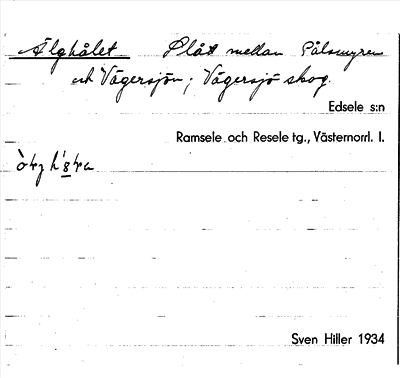 Älghålet Plåt mellan Pålsmyren
och Vägersjön; Vägersjö skog.
Edsele s:n
Ramsele och Resele tg., Västernorrl. l.
Sven Hiller 1934